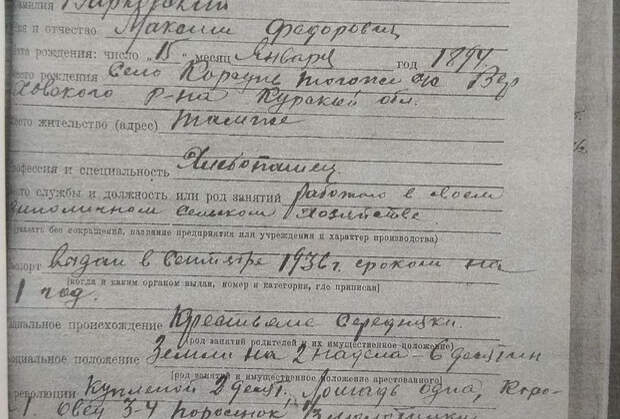 амилия
и отчество Максим Федорович
та рождения: число „15" месяц Января год 1894.
сто рождения Село
ховского р-на Курской обл.
сто жительство (адрес)
офессия и специальность Хлебопашец.
сто службы и должность или род занятий работаю в своем
единоличном сельском хозяйстве
(указать без сокращений, название предприятия или учреждения и характер производства)
спорт выдан в сентябре 1936 г. сроком на
1 год.
[когда и каким органом выдан, номер и категория, где приписан]
циальное происхождение Крестьяне Середняки.
(род занятий родителей и их имущественное положение)
циальное положение Земли на 2 надела - 6 десятин
[род занятий и имущественное положение арестованного]
революции купленой 2 десят. Лошадь одна, Коро-
1 Овец 3-4 поросенок